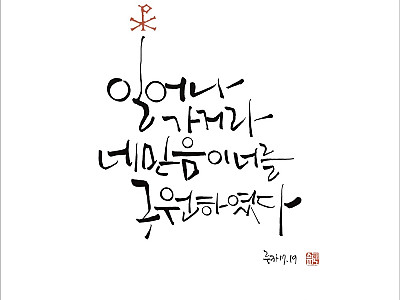 일어나
가거라
네 믿음이 너를
구원하였다
루카 17.19